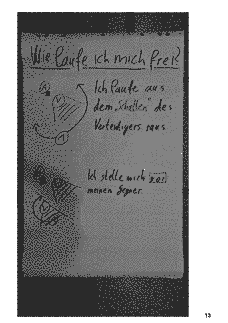 Wie laufe ich mich frei?
Ich laufe aus
dem „Schatten" des
Verteidigers raus
Ich stelle mich vor
meinen Gegner.
13